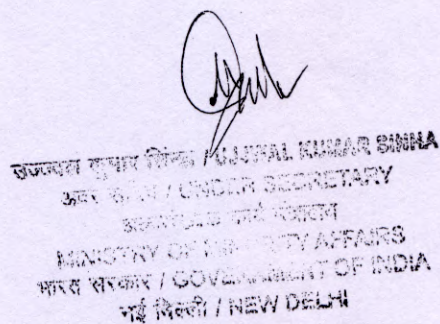 उज्ज्वल कुमार सिन्हा / UJJWAL KUMAR SINHA
अवर सचिव / UNDER SECRETARY
कार्य मंत्रालय
MINISTRY OF MINORITY AFFAIRS
भारत सरकार / GOVERNMENT OF INDIA
नई दिल्ली / NEW DELHI